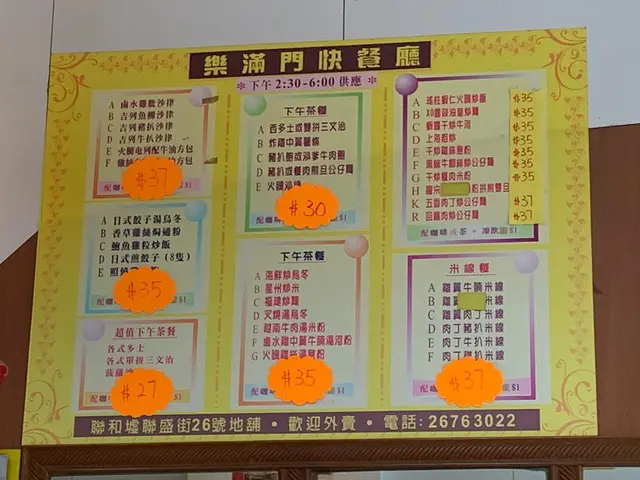 樂滿門快餐廳
*下午 2:30-6:00 供應*
A 鹵水雞髀沙律
B 吉列魚柳沙律
C 吉列豬扒沙律
D 吉列牛扒沙律
E 火腿 配牛油方包
F 雞 牛油方包
配 $1
#37
A 日式餃子湯烏冬
B 香草雞絲焗通粉
C 鮑魚雞粒炒飯
D 日式煎餃子 (8隻)
E 照燒
配 $1
#35
超值下午茶餐
各式多士
各式單拼三文治
菠蘿
配 $1
#27
下午茶餐
A 西多士或雙拼三文治
B 炸雞中翼薯條
C 豬扒飽或滑爹牛肉飽
D 豬扒或餐肉煎旦公仔麵
E 火腿湯
配咖 $1
#30
下午茶餐
A 海鮮炒烏冬
B 星州炒米
C 福建炒麵
D 叉燒湯烏冬
E 越南牛肉湯米粉
F 鹵水雞中翼牛腩湯河粉
G 火腿雞
配咖 $1
#35
A 班柱蝦仁火腿炒飯 #35
B XO醬豉油皇炒麵 #35
C 乾炒牛河 #35
D 上海粗炒 #35
E 干炒雞絲意粉 #35
F 牛柳絲炒公仔麵 #35
G 干炒 肉米粉 #35
H 粉拼煎雙旦
K 五香肉丁炒公仔麵 #37
R 回鍋肉炒公仔麵 #37
配咖啡或茶·凍飲加$1
米線餐
A 雞翼牛腩米線
B 雞翼 米線
C 雞翼肉丁米線
D 肉丁豬扒米線
E 肉丁牛扒米線
F 肉丁雞扒米線
配咖 $1
#37
聯和墟聯盛街26號地舖·歡迎外賣·電話:26763022